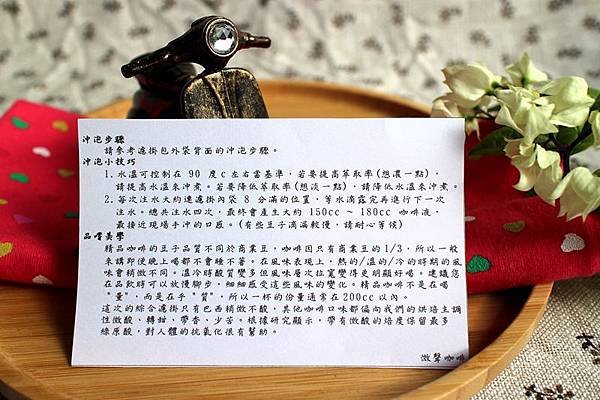 沖泡步驟
請參考濾掛包外袋背面的沖泡步驟。
沖泡小技巧
1.水溫可控制在 90 度c左右當基準，若要提高萃取率(想濃一點)，
請提高水溫來沖煮。若要降低萃取率(想淡一點)，請降低水溫來沖煮。
2.每次注水大約達濾掛內袋 8 分滿的位置，等水滴露完再進行下一次
注水。總共注水四次，最終會產生大約 150cc ~ 180cc 咖啡液，
最接近現場手沖的口感。(有些豆子滴漏較慢，請耐心等候)
品嚐美學
精品咖啡的豆子品質不同於商業豆，咖啡因只有商業豆的1/3，所以一般
來講即使晚上喝都不會睡不著。在風味表現上，熱的/溫的/冷的時期的風
味會稍微不同。溫冷時酸質變多但風味層次拉寬變得更明顯好喝。建議您
在品飲時可以放慢腳步，細細感受這些風味的變化。精品咖啡不是在喝
"量"，而是在乎"質"，所以一杯的份量通常在200cc以內。
這次的綜合濾掛只有巴西稍微不酸，其他咖啡口味都偏向我們的烘焙主調
性微酸、轉甜、帶香、少苦。根據研究顯示，帶有微酸的焙度保留最多
綠原酸，對人體的抗氧化很有幫助。
微聲咖啡